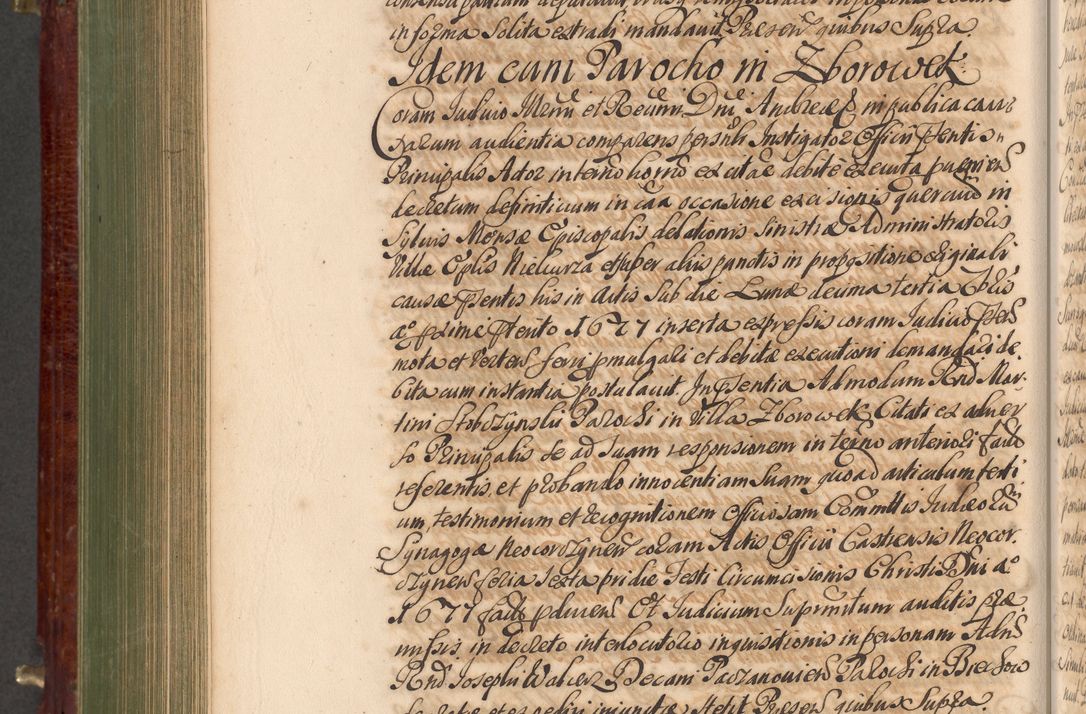 in forma solita extradi mandavit Præsen quibus Supra.
Idem cum Parocho in Zborowek
Coram Judicio Illrmi et Recrmi Dni Andreæ E in publica cau
sarum audientia comparens persnlr Instigator Officii Pfentis
Principalis Actor in termo horno ex citae debite executa pariens
decretum definitivum in cåa occasione excisionis quercuum in
Sylvis Mensæ Episcopalis delationis sinistræ Administratoris
Villæ Eplis Nieliurza et super aliis punctis in propositione originali
causæ Pfentis his in Actis sub die Lunæ decima tertia Xbris
aº proxime Pterito 1677 inserta expressis coram Judicio Pfens
mota et Vertens ferri pmulgari et debitæ executioni demandari de,
bita cum instantia postulavit. In Pfentia Admodum Rnd Mar,
tini Stobszynski Parochi in Villa Zborowek Citati ex adver
so Principalis se ad suam responsionem in termo anteriori facta
referentis, et probando innocentiam suam quoad articulum terti,
um, testimonium et recognitionem Officiosam Committis Judæorum
Synagogæ Neocorczynen coram Actis Officii Castrensis Neocor,
czynen feria sexta pridie Festi Circumcisionis Christi Dni aº
1677 facta pducens Et Judicium Suprmtum auditis præ,
missis in decreto interlocutorio inquisitionis in personam Adm
Rnd Josephi Walcerz Decani Paczanovien Parochi in Biechow